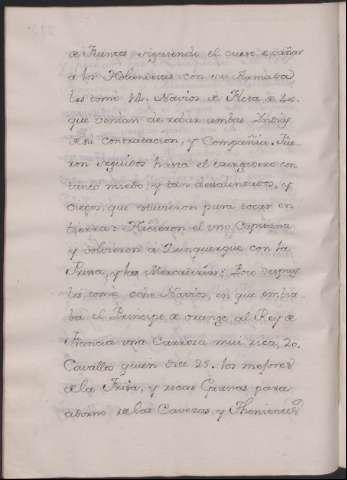 de Fuentes siguiendo el curso e dañar
a los Holandeses con su Armada
les tomó 14. Navios de Flota de los
que venian de robar ambas Indias
de su contratacion, y Compañia. Fue
ron seguidos hasta el surgidero con
tanto miedo, y tan desalentados, y
ciegos que murieron para tocar en
tierra: Hicieron el uno Capitana
y volvieron a Dunquerque con la
Pressa, y las Mercaderias: Poco despues
les tomó ocho Navios, en que embia
ba el Principe de orange al Rey de
Francia una Carroza mui rica, 20.
Cavallos quien dice 25. los mejores
de la Frisa, y ricas Guarnas para
adorno de los Cavezas, y